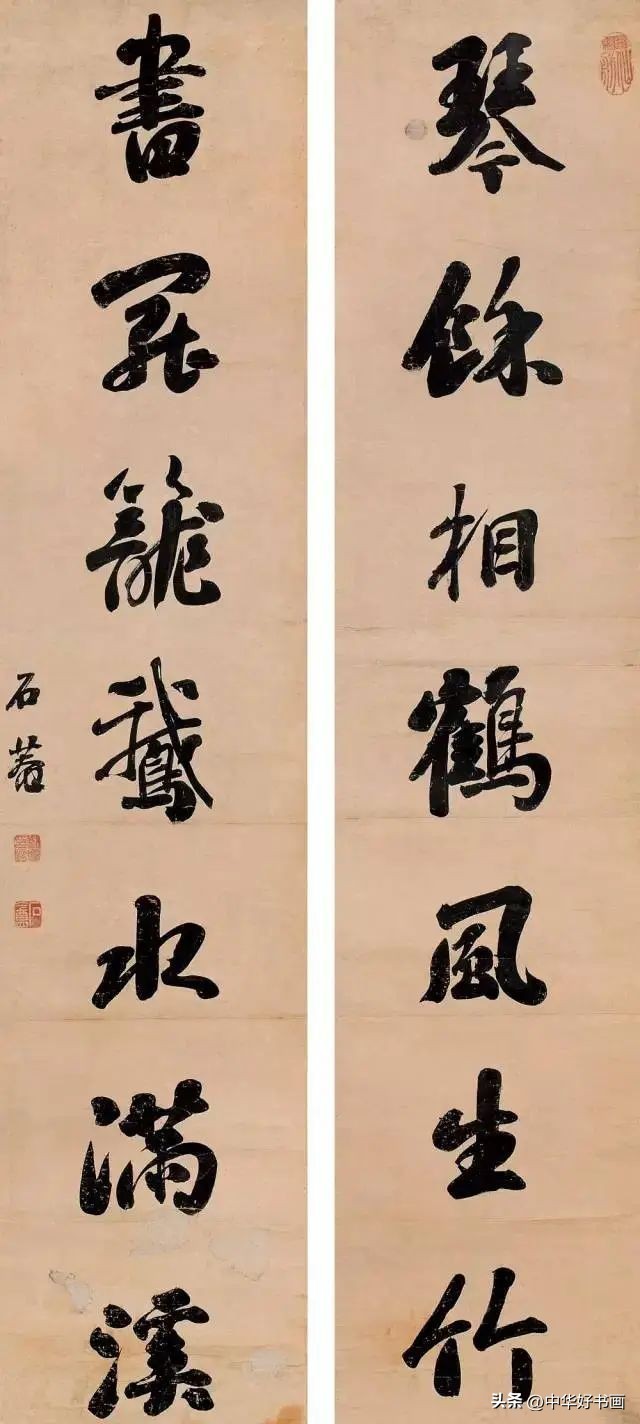 琴餘相鶴風生竹
書罷籠鵞水滿溪
石菴
头条 @中华好书画